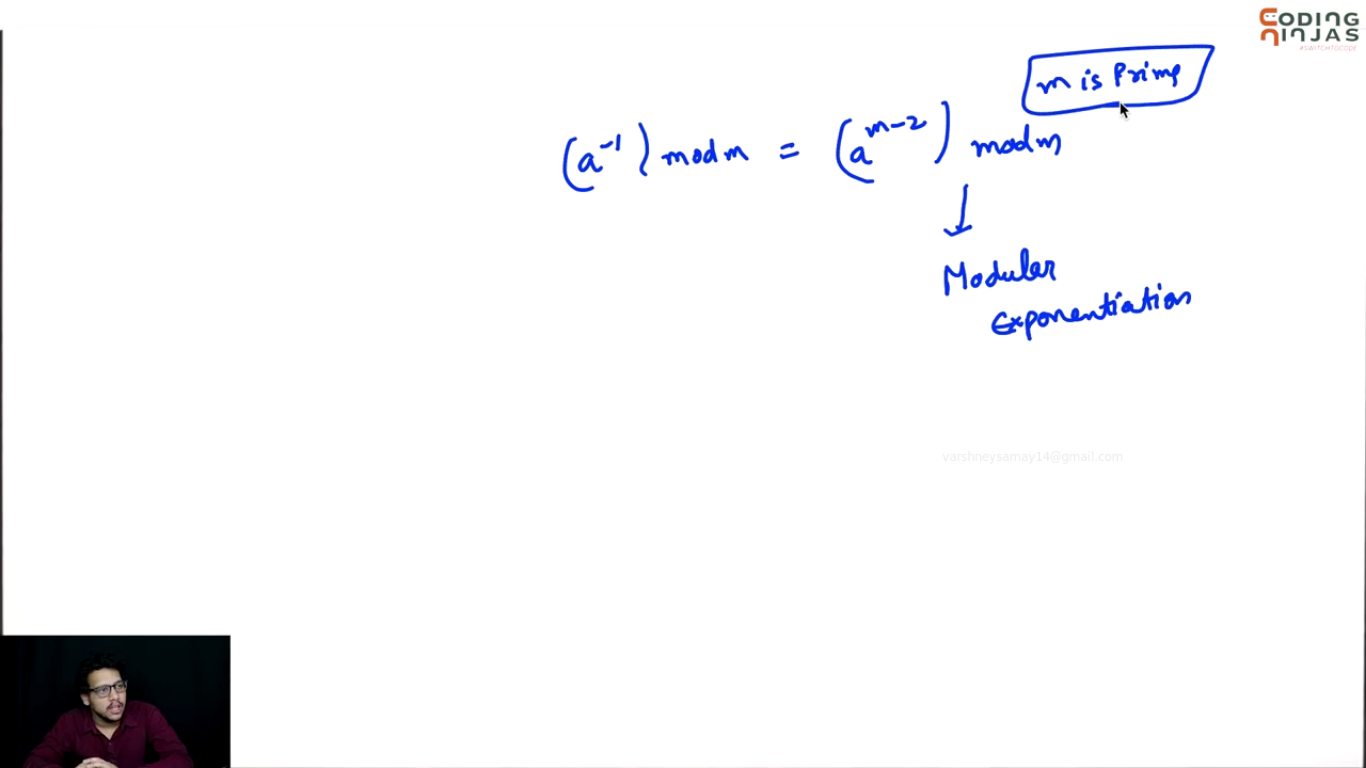 CODING
NINJAS
#SWITCHTOCODE
m is Prime
(a⁻¹) mod m = (a^{m-2}) mod m
↓
Modular
Exponentiation
varshneysamay14@gmail.com